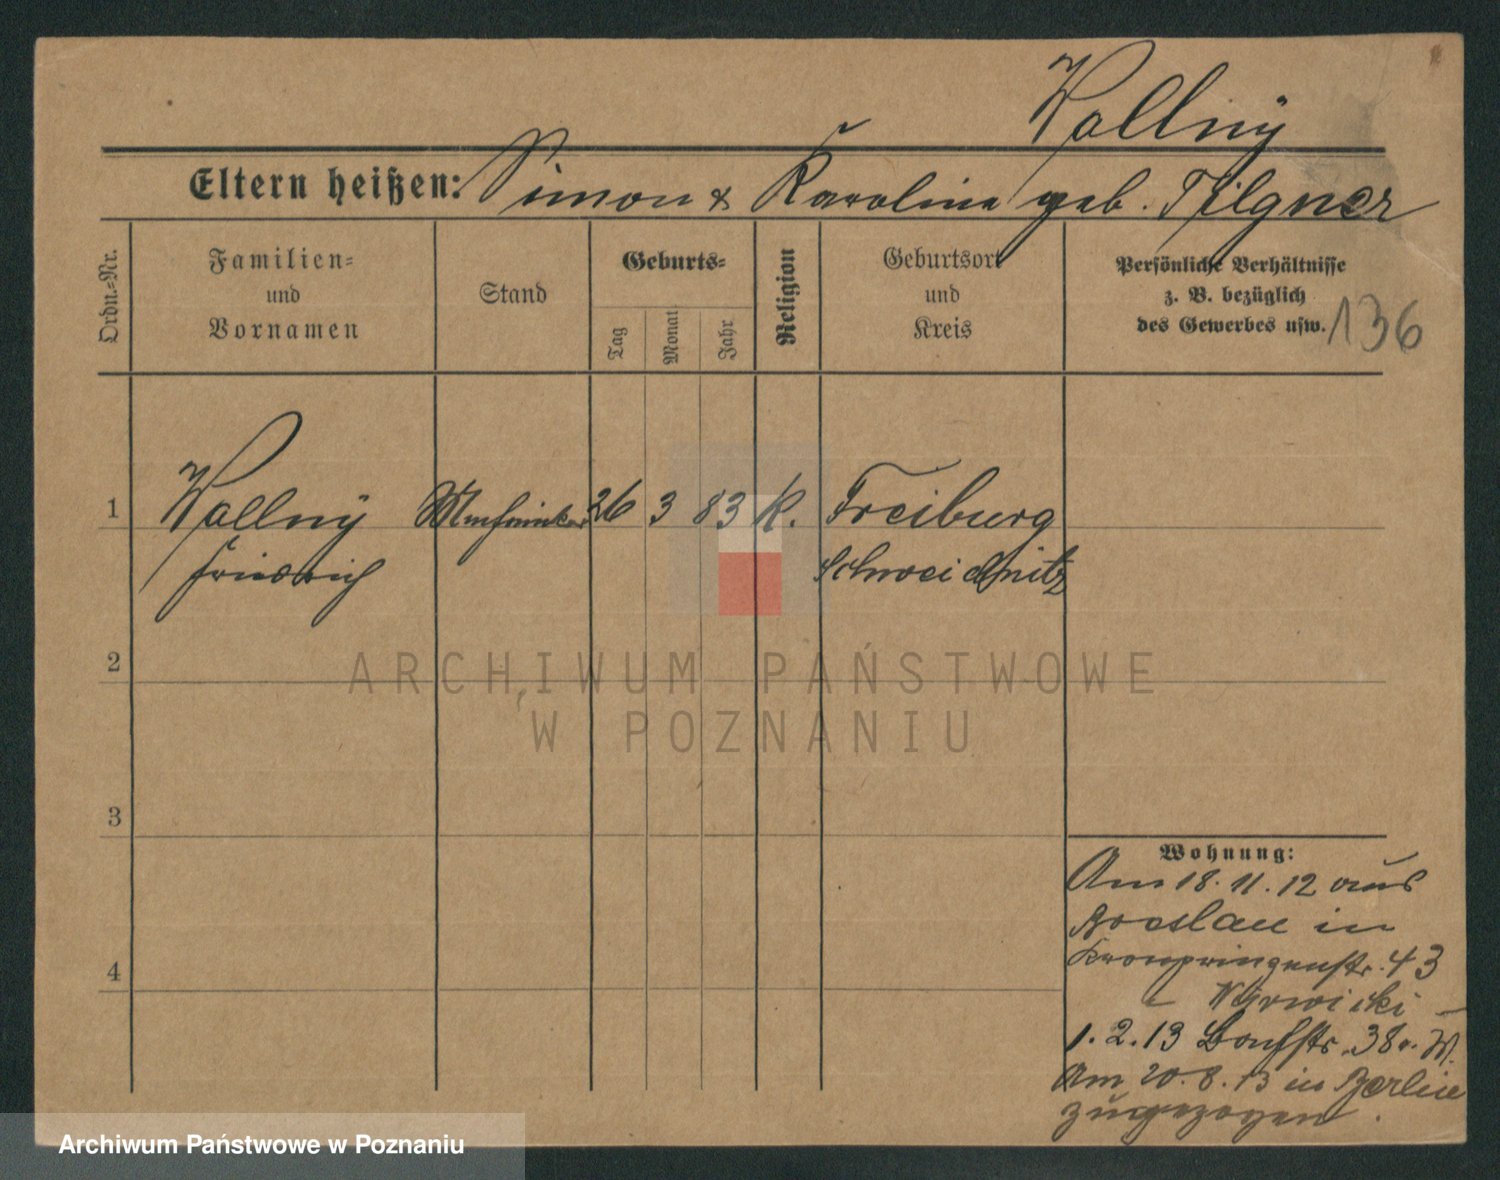 Wallny
Eltern heißen: Simon & Karoline geb. Tilgner
Ordn.=Nr.
Familien=
und
Vornamen
Stand
Geburts=
Tag
Monat
Jahr
Religion
Geburtsort
und
Kreis
Persönliche Verhältnisse
z. B. bezüglich
des Gewerbes usw.
136
1 Wallny 26 3 83 K. Freiburg
Friedrich Schweidnitz
2
3
4
Wohnung:
Am 18.11.12 aus
Breslau in
Kronprinzenstr. 43
1.2.13 38
Am 20.8.13 in Berlin
zugezogen.
ARCHIWUM PAŃSTWOWE
W POZNANIU
Archiwum Państwowe w Poznaniu